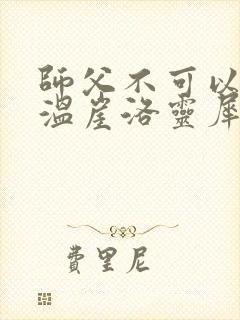 師父不可以
溫崖洛靈犀
費里尼